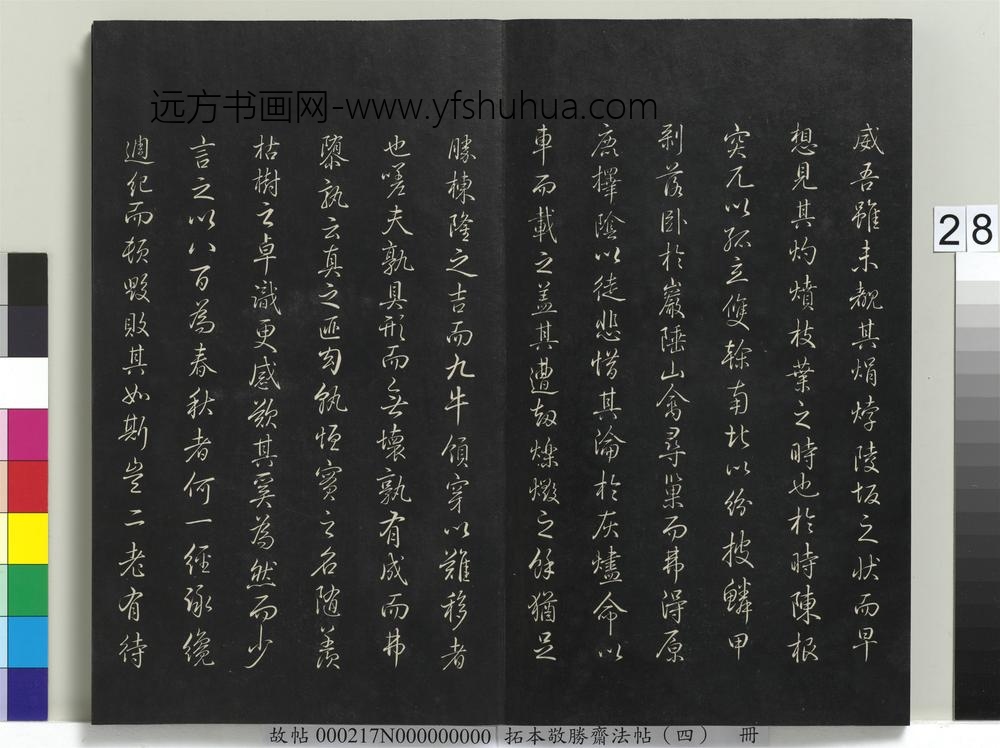 远方书画网-www.yfshuhua.com
威吾雖未覩其焆㶿陵坂之状而早
想見其灼燌枝葉之時也於時陳根
突兀以孤立雙榦南北以紛披鱗甲
剥落卧於巖陲山禽尋巢而弗得原
鹿擇陰以徒悲惜其淪於灰燼命以
車而載之盖其遭劫爍燬之餘猶足
勝棟隆之吉而九牛領穿以難移者
也嗟夫孰具形而無壊孰有成而弗
隳孰云真之匪匃孰恒賓之名随羨
枯樹之卓識更感歎其奚為然而少
言之以八百為春秋者何一經詠纔
週紀而頓毁敗其如斯豈二老有待
28
故帖 000217N000000000 拓本敬勝齋法帖（四） 冊